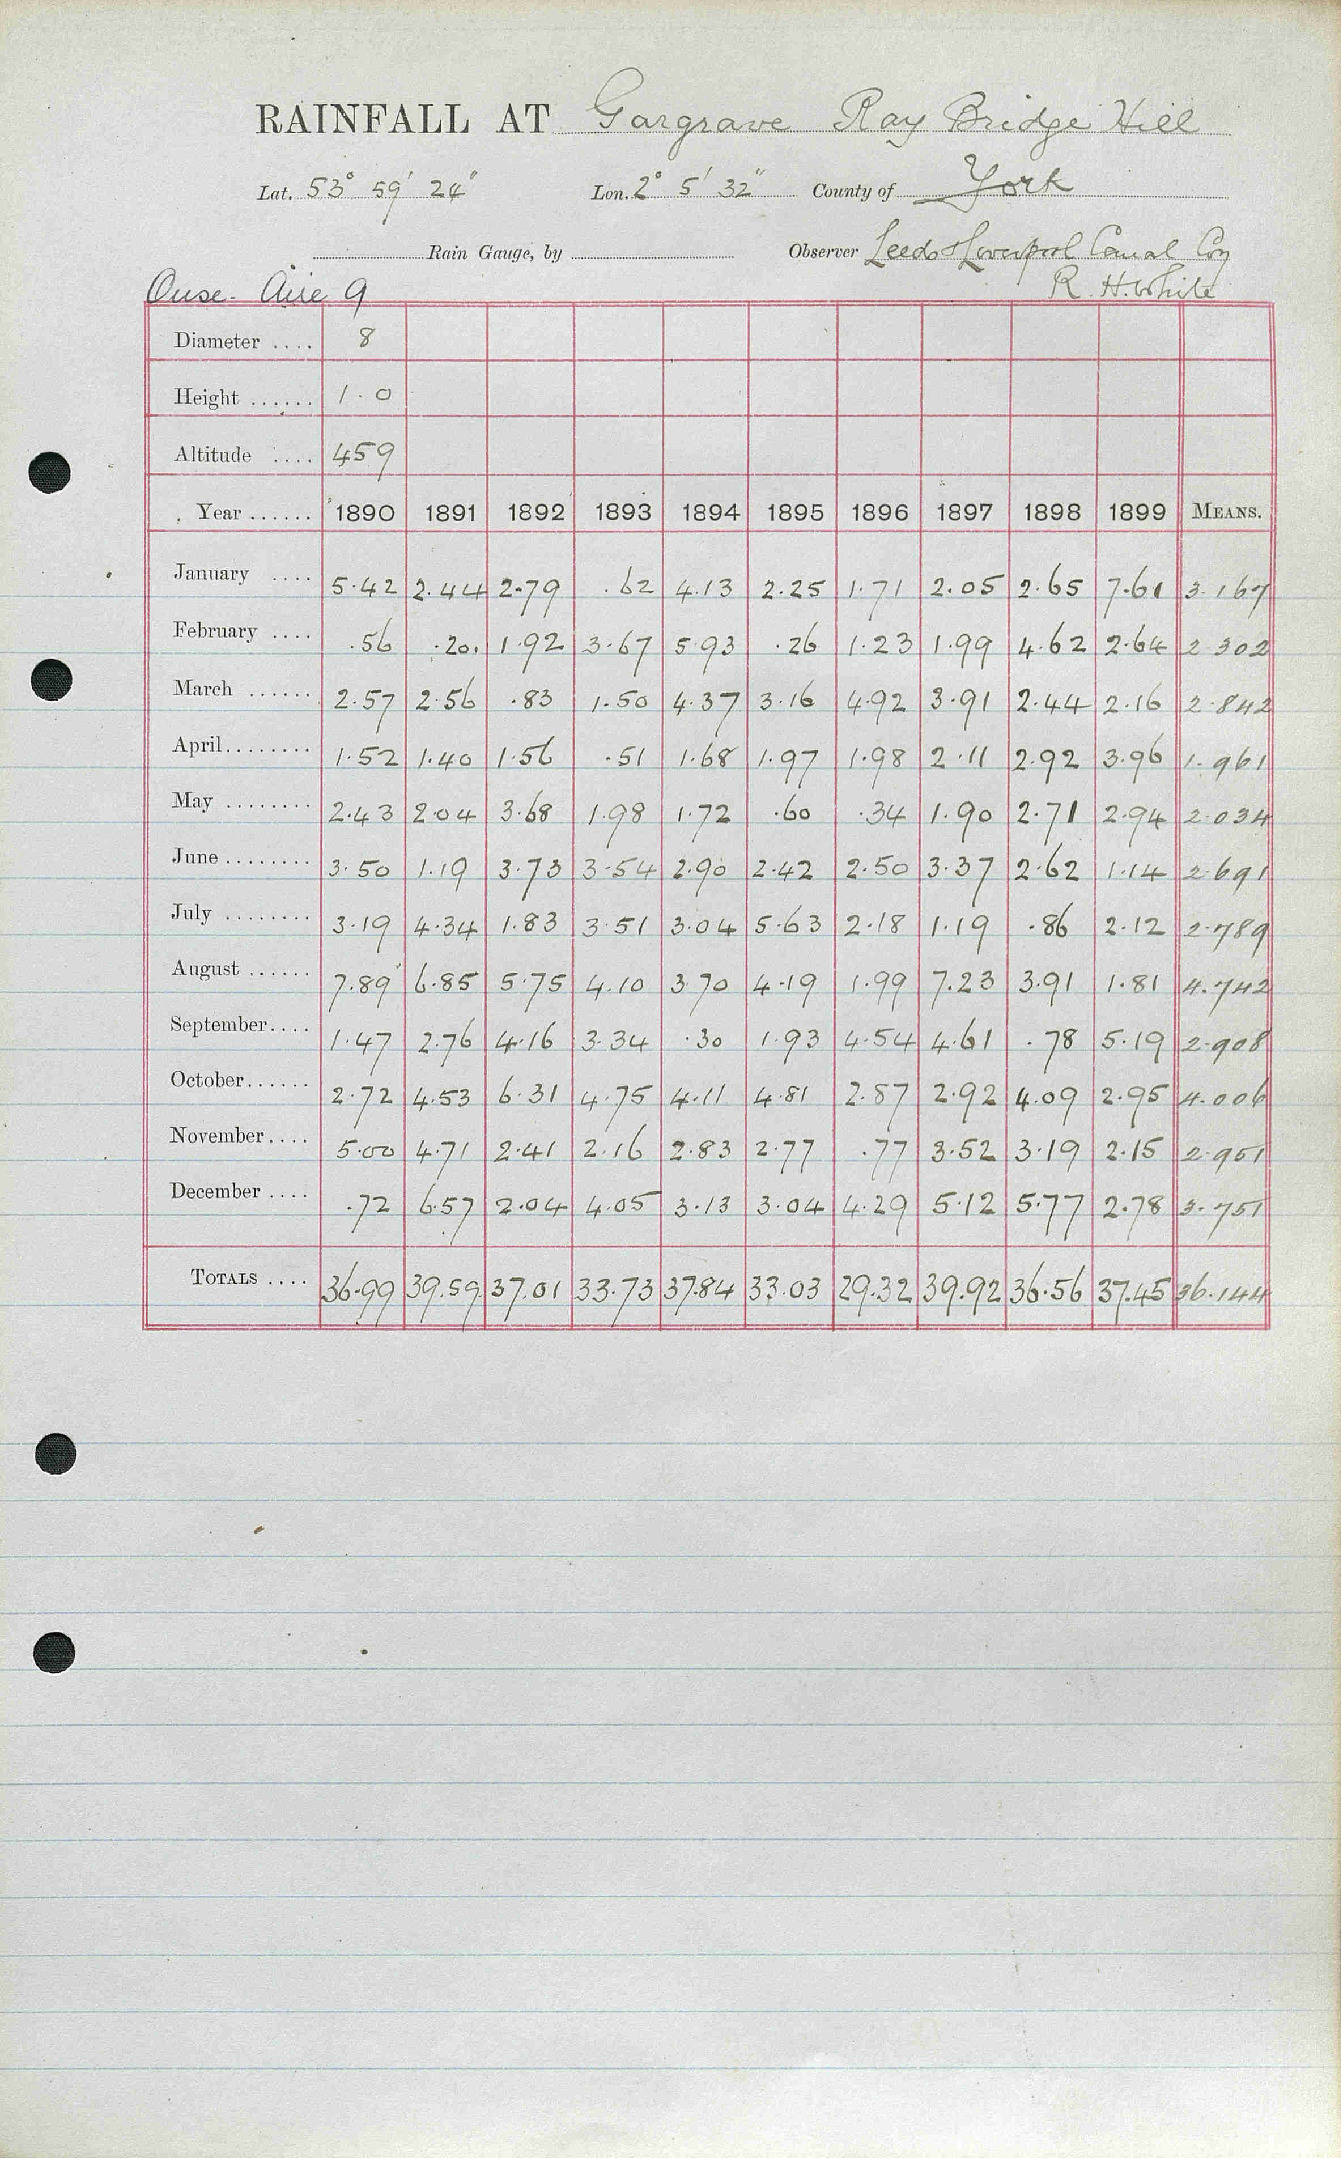 RAINFALL AT Gargrave Ray Bridge Hill
Lat. 53° 59' 24" Lon. 2° 5' 32" County of York
Rain Gauge, by Observer Leeds & Liverpool Canal Coy
Ouse. Aire 9 R. H. White
Diameter .... 8
Height ...... 1.0
Altitude .... 459
Year ...... 1890 1891 1892 1893 1894 1895 1896 1897 1898 1899 MEANS.
January .... 5.42 2.44 2.79 .62 4.13 2.25 1.71 2.05 2.65 7.61 3.167
February .... .56 .20 1.92 3.67 5.93 .26 1.23 1.99 4.62 2.64 2.302
March ...... 2.57 2.56 .83 1.50 4.37 3.16 4.92 3.91 2.44 2.16 2.842
April........ 1.52 1.40 1.56 .51 1.68 1.97 1.98 2.11 2.92 3.96 1.961
May ........ 2.43 2.04 3.68 1.98 1.72 .60 .34 1.90 2.71 2.94 2.034
June ........ 3.50 1.19 3.73 3.54 2.90 2.42 2.50 3.37 2.62 1.14 2.691
July ........ 3.19 4.34 1.83 3.51 3.04 5.63 2.18 1.19 .86 2.12 2.789
August ...... 7.89 6.85 5.75 4.10 3.70 4.19 1.99 7.23 3.91 1.81 4.742
September.... 1.47 2.76 4.16 3.34 .30 1.93 4.54 4.61 .78 5.19 2.908
October...... 2.72 4.53 6.31 4.75 4.11 4.81 2.87 2.92 4.09 2.95 4.006
November.... 5.00 4.71 2.41 2.16 2.83 2.77 .77 3.52 3.19 2.15 2.951
December .... .72 6.57 2.04 4.05 3.13 3.04 4.29 5.12 5.77 2.78 3.751
TOTALS .... 36.99 39.59 37.01 33.73 37.84 33.03 29.32 39.92 36.56 37.45 36.144